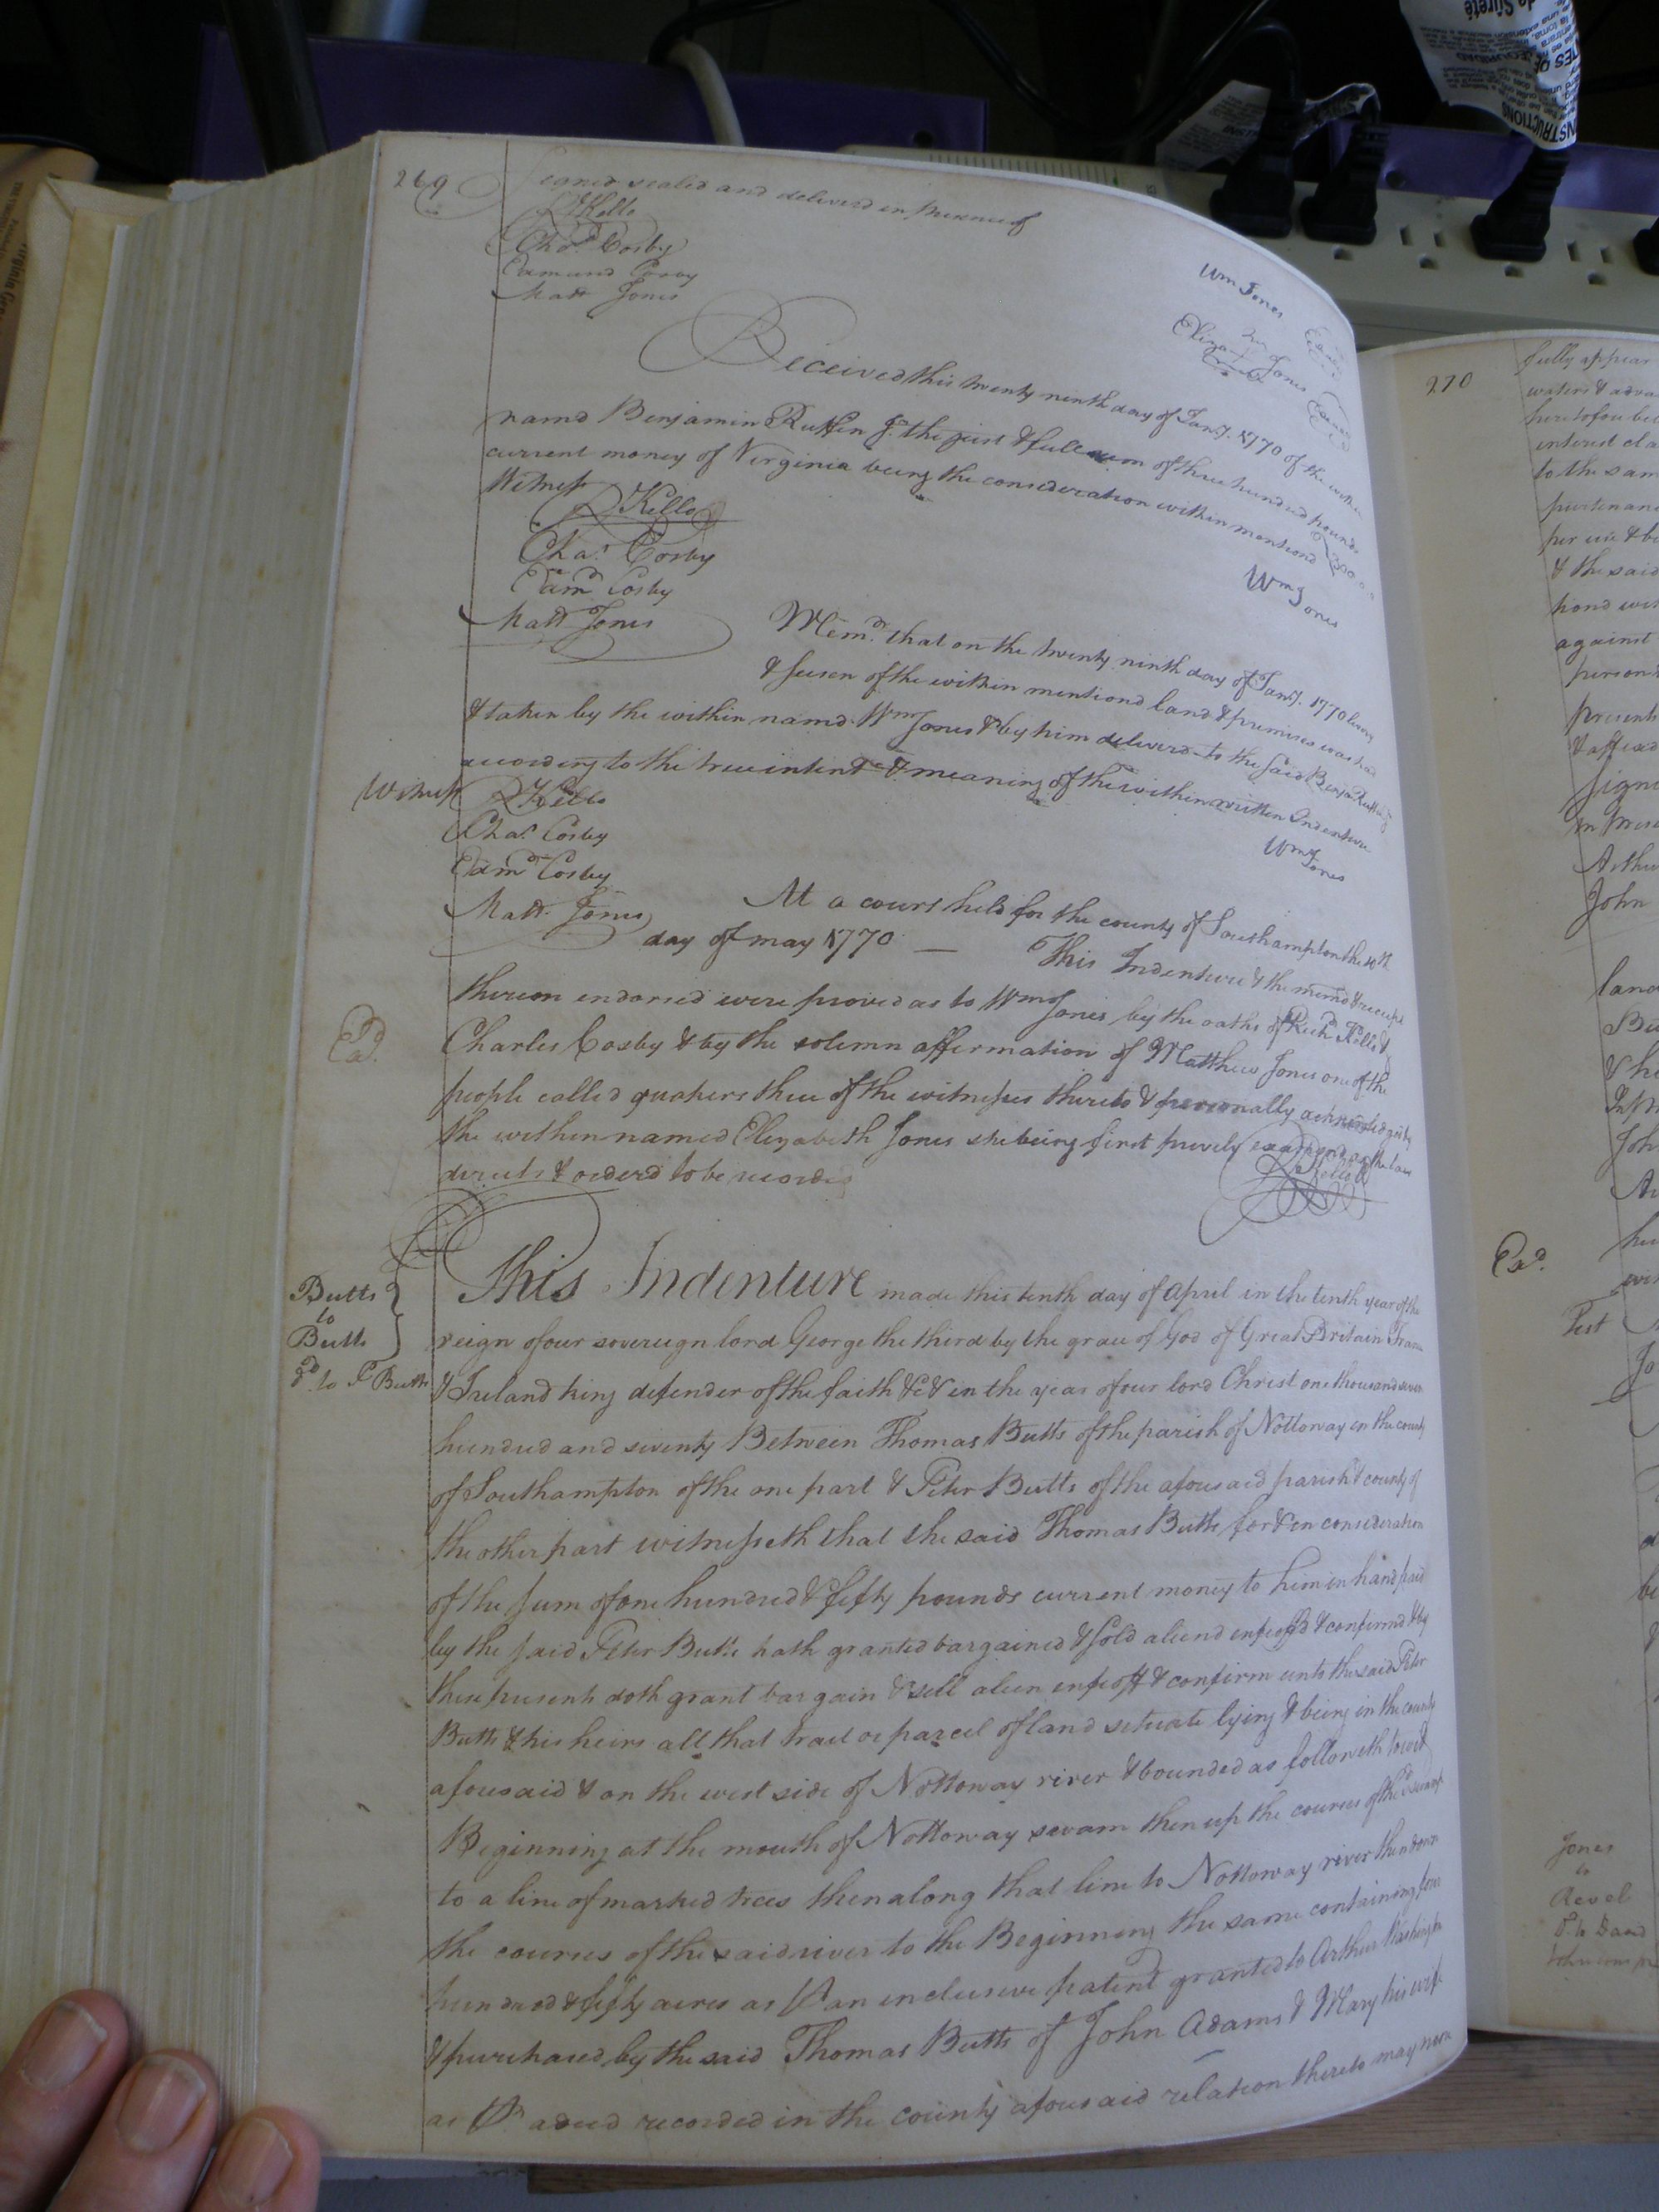 269
Signed sealed and deliverd in presence of
R Kello
Chas. Cosby
Edmund Cosby
Matt Jones
Wm Jones
her
Eliza Jones
Received this twenty ninth day of Jany. 1770 of the within
named Benjamin Ruffin Jr. the just & full sum of three hundred pounds
current money of Virginia being the consideration within mentiond
Witness
R Kello
Chas. Cosby
Edmd Cosby
Matt Jones
Wm Jones
Memd. that on the twenty ninth day of Jany. 1770 livery
& seisen of the within mentiond land & premises was had
& taken by the within namd Wm Jones & by him deliverd to the said Benja Ruffin
according to the true intent & meaning of the within written Indenture
Wm Jones
Witness R Kello
Chas. Cosby
Edmd Cosby
Matt. Jones
At a court held for the county of Southampton the 10th
day of may 1770 — This Indenture & the memd & receipt
thereon endorsed were proved as to Wm Jones by the oaths of Richd Kello &
Charles Cosby & by the solemn affirmation of Matthew Jones one of the
people called quakers three of the witnesses thereto & personally acknowledged by
the within named Elizabeth Jones she being first privily examined as the law
directs & orderd to be recorded
R Kello
Exd.
Butts
to
Butts
Dd. to P Butts
This Indenture made this tenth day of April in the tenth year of the
reign of our sovereign lord George the third by the grace of God of Great Britain France
& Ireland king defender of the faith &c & in the year of our lord Christ one thousand seven
hundred and seventy Between Thomas Butts of the parish of Nottoway in the county
of Southampton of the one part & Peter Butts of the aforesaid parish & county of
the other part witnesseth that the said Thomas Butts for & in consideration
of the sum of one hundred & fifty pounds current money to him in hand paid
by the said Peter Butts hath granted bargained & sold aliend enfeoffd & confirmd & by
these presents doth grant bargain & sell alien enfeoff & confirm unto the said Peter
Butts & his heirs all that tract or parcel of land setuate lying & being in the county
aforesaid & on the west side of Nottoway river & bounded as followeth towit
Beginning at the mouth of Nottoway swam then up the courses of the sd swamp
to a line of marked trees then along that line to Nottoway river then down
the courses of the said river to the Beginning the same containing four
hundred & fifty acres as P an inclusive patent granted to Arthur Washington
& purchased by the said Thomas Butts of John Adams & Mary his wife
as P a deed recorded in the county aforesaid relation thereto may more
270
fully appear
waters & adva
heretofore be
interest cla
to the sam
purtenan
per use & be
& the said
tiond wit
against
person
presents
& affixed
Signe
in prese
Arthu
John
land
Bu
& he
John
Exd.
Test
Jones
to